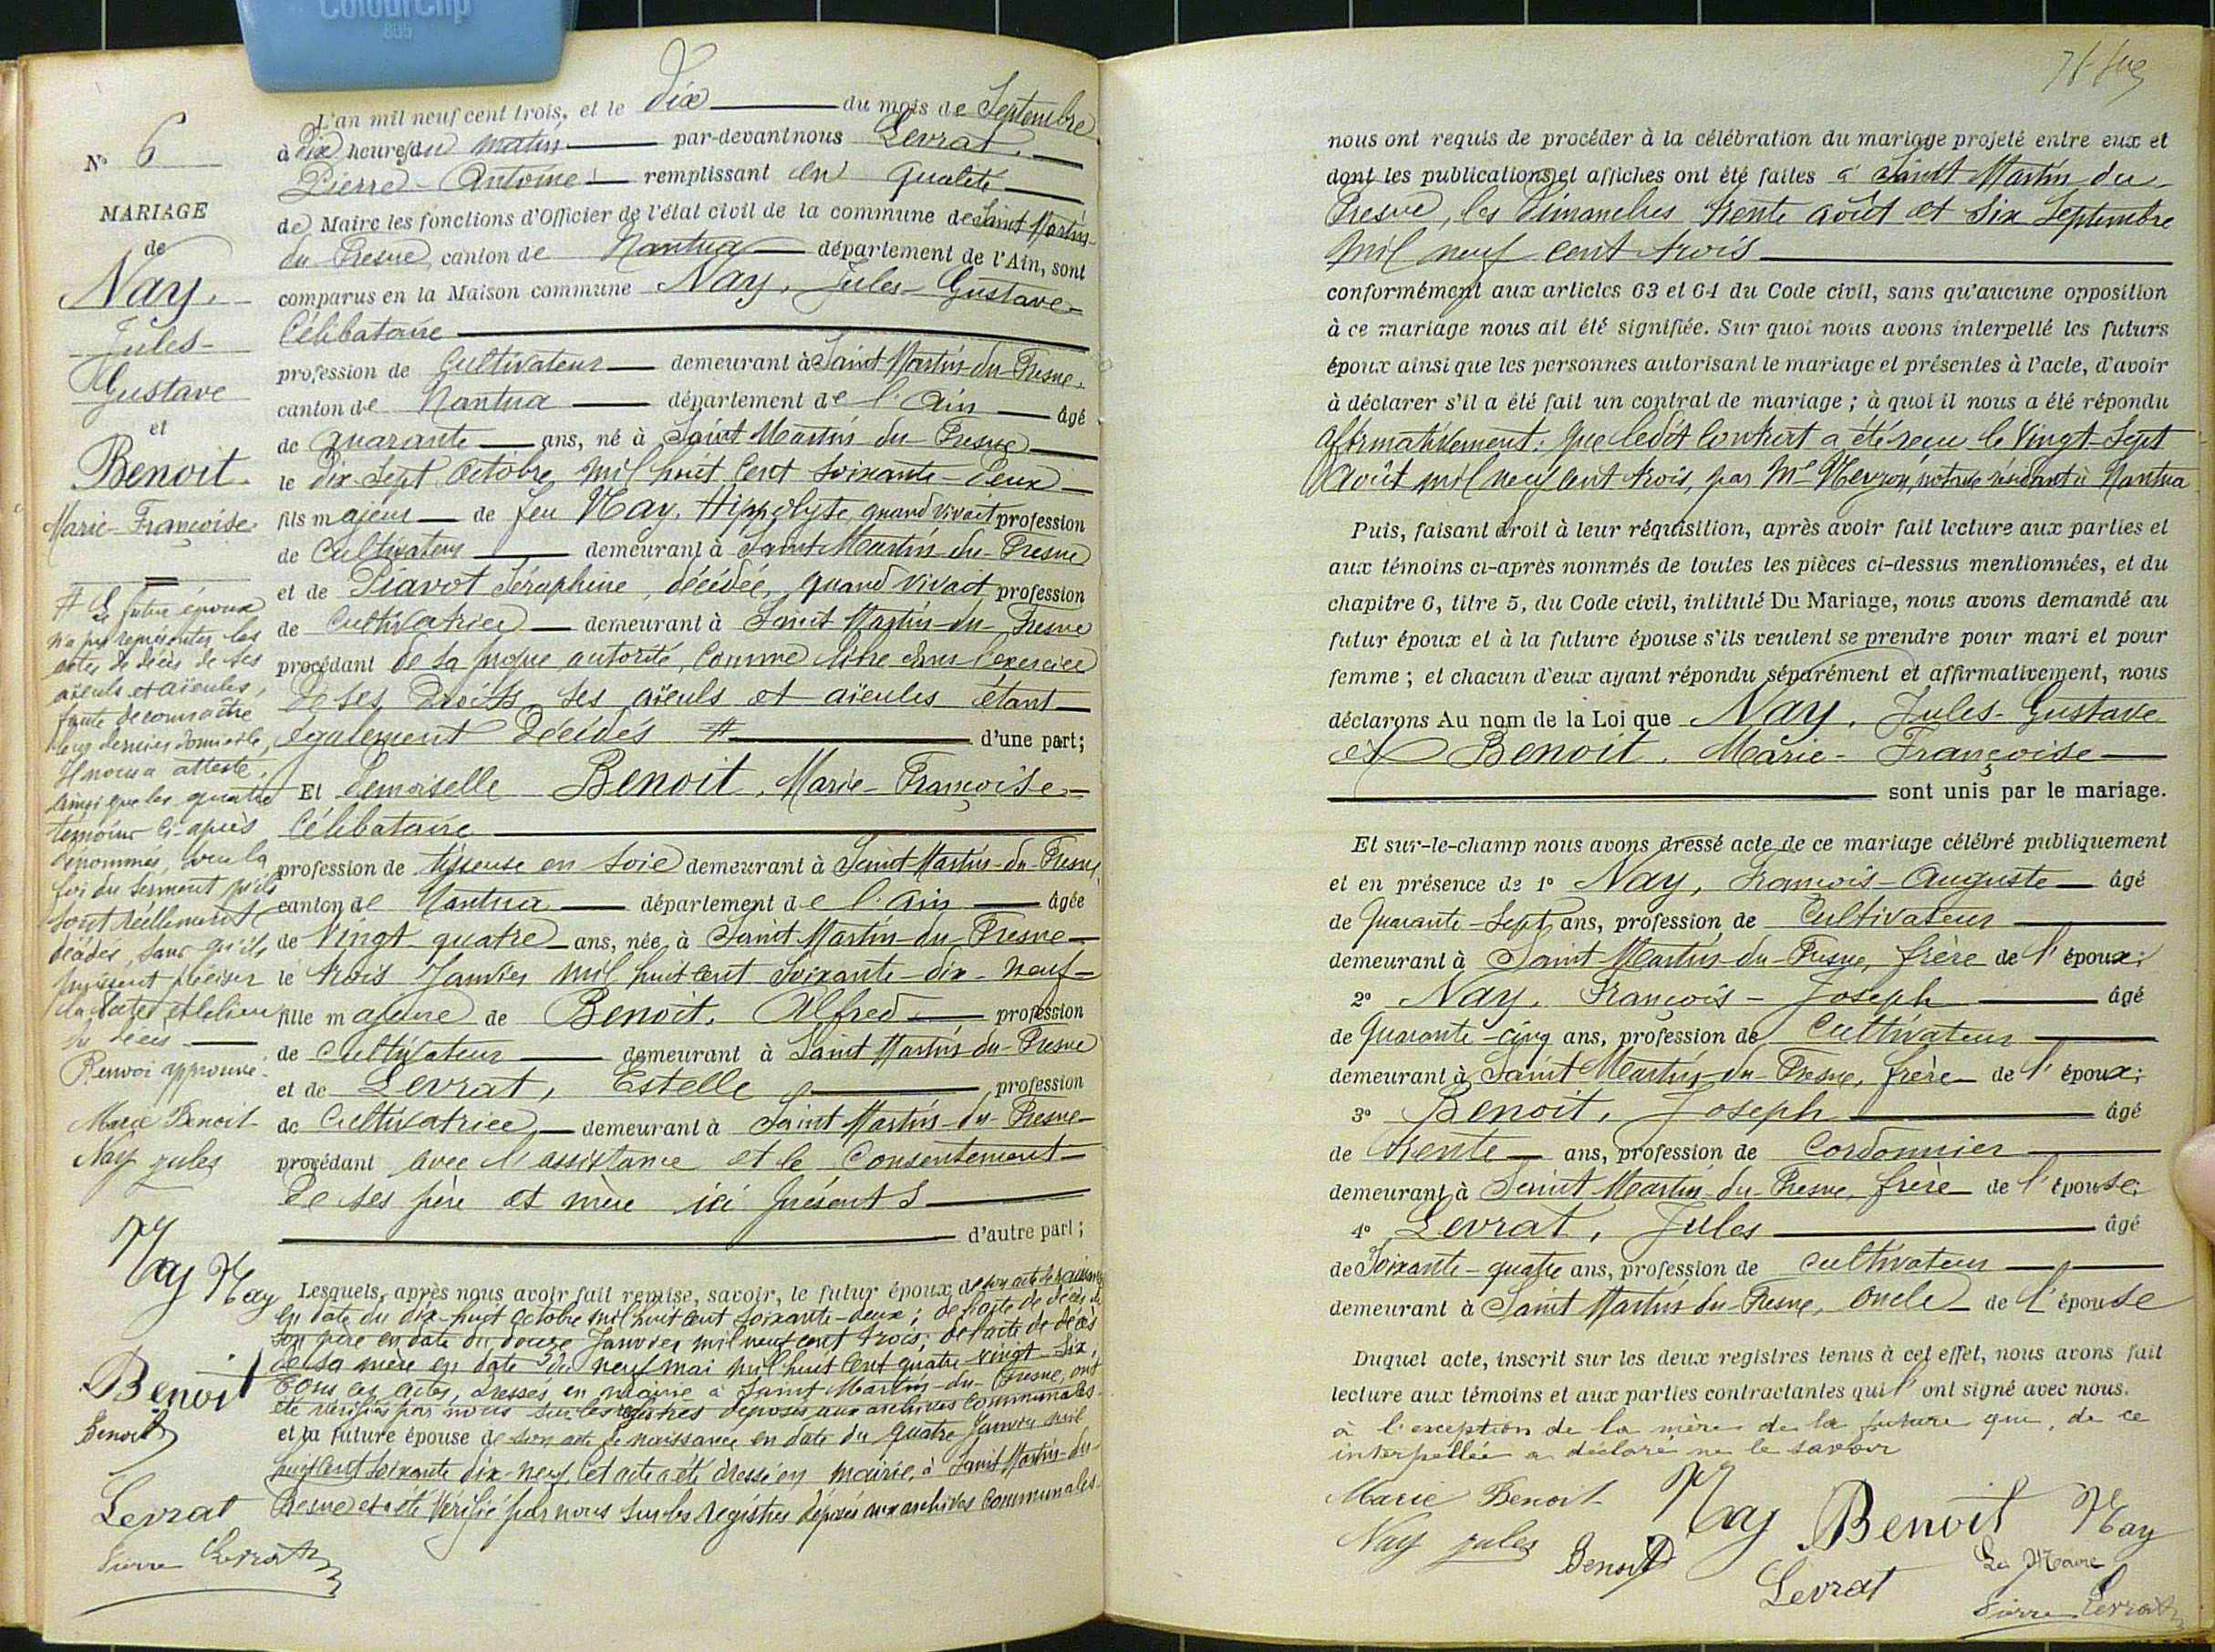 ColourClip
805
N° 6
MARIAGE
de
Nay.
Jules-
Gustave
et
Benoit.
Marie-Françoise.
# Le futur époux
n'a pu représenter les
actes de décès de ses
aïeuls et aïeules,
faute de connaître
leur dernier domicile,
Il nous a attesté,
ainsi que les quatre
témoins ci-après
dénommés, sous la
foi du serment qu'ils
sont réellement
décédés, sans qu'ils
puissent préciser
la date et le lieu
du décès
Renvoi approuvé.
Marie Benoit
Nay jules
Nay Nay
Benoit
Benoit
Levrat
Pierre Levrat
L'an mil neuf cent trois, et le dix du mois de Septembre
à dix heures du matin par-devant nous Levrat.
Pierre-Antoine remplissant en qualité
de Maire les fonctions d'Officier de l'état civil de la commune de Saint Martin-
du Fresne, canton de Nantua département de l'Ain, sont
comparus en la Maison commune Nay, Jules-Gustave
Célibataire
profession de Cultivateur demeurant à Saint Martin-du-Fresne,
canton de Nantua département de l'Ain âgé
de quarante ans, né à Saint Martin du Fresne
le dix-sept octobre mil huit cent soixante-deux
fils majeur de feu Nay, Hippolyte, quand vivait profession
de Cultivateur demeurant à Saint Martin-du-Fresne
et de Piavot Séraphine, décédée, quand vivait profession
de Cultivatrice demeurant à Saint Martin-du-Fresne
procédant de sa propre autorité, comme libre dans l'exercice
de ses droits, ses aïeuls et aïeules étant
également décédés # d'une part;
Et demoiselle Benoit, Marie-Françoise
Célibataire
profession de tisseuse en soie demeurant à Saint-Martin-du-Fresne,
canton de Nantua département de l'Ain âgée
de Vingt-quatre ans, née à Saint-Martin-du-Fresne
le trois Janvier mil huit cent soixante-dix-neuf
fille majeure de Benoit, Alfred profession
de Cultivateur demeurant à Saint Martin-du-Fresne
et de Levrat, Estelle profession
de Cultivatrice, demeurant à Saint Martin-du-Fresne
procédant avec l'assistance et le Consentement
de ses père et mère ici présents
d'autre part;
Lesquels, après nous avoir fait remise, savoir, le futur époux de son acte de naissance
en date du dix-huit octobre mil huit cent soixante-deux; de l'acte de décès de
son père en date du douze Janvier mil neuf cent trois; de l'acte de décès
de sa mère en date du neuf mai mil huit cent quatre-vingt-six,
tous ces actes, dressés en mairie à Saint Martin-du-Fresne, ont
été vérifiés par nous sur les registres déposés aux archives communales.
et la future épouse de son acte de naissance en date du quatre Janvier mil
huit cent soixante dix-neuf, cet acte a été dressé en mairie, à Saint Martin-du-
Fresne et a été vérifié par nous sur les registres déposés aux archives communales.
nous ont requis de procéder à la célébration du mariage projeté entre eux et
dont les publications et affiches ont été faites à Saint Martin-du-
Fresne, les dimanches trente août et six Septembre
mil neuf cent trois
conformément aux articles 63 et 64 du Code civil, sans qu'aucune opposition
à ce mariage nous ait été signifiée. Sur quoi nous avons interpellé les futurs
époux ainsi que les personnes autorisant le mariage et présentes à l'acte, d'avoir
à déclarer s'il a été fait un contrat de mariage; à quoi il nous a été répondu
affirmativement: que ledit contrat a été reçu le vingt-sept
août mil neuf cent trois, par Me notaire résidant à Nantua
Puis, faisant droit à leur réquisition, après avoir fait lecture aux parties et
aux témoins ci-après nommés de toutes les pièces ci-dessus mentionnées, et du
chapitre 6, titre 5, du Code civil, intitulé Du Mariage, nous avons demandé au
futur époux et à la future épouse s'ils veulent se prendre pour mari et pour
femme; et chacun d'eux ayant répondu séparément et affirmativement, nous
déclarons Au nom de la Loi que Nay, Jules-Gustave
et Benoit, Marie-Françoise
sont unis par le mariage.
Et sur-le-champ nous avons dressé acte de ce mariage célébré publiquement
et en présence de 1° Nay, François-Auguste âgé
de quarante-sept ans, profession de Cultivateur
demeurant à Saint-Martin-du-Fresne, frère de l'époux;
2° Nay, François-Joseph âgé
de quarante-cinq ans, profession de Cultivateur
demeurant à Saint Martin-du-Fresne, frère de l'époux;
3° Benoit, Joseph âgé
de trente ans, profession de Cordonnier
demeurant à Saint Martin-du-Fresne, frère de l'épouse;
4° Levrat, Jules âgé
de Soixante-quatre ans, profession de cultivateur
demeurant à Saint Martin-du-Fresne, oncle de l'épouse
Duquel acte, inscrit sur les deux registres tenus à cet effet, nous avons fait
lecture aux témoins et aux parties contractantes qui l'ont signé avec nous.
à l'exception de la mère de la future que, de ce
interpellée a déclaré ne le savoir
Marie Benoit Nay Benoit Nay
Nay jules Benoit Levrat Le Maire
Pierre Levrat